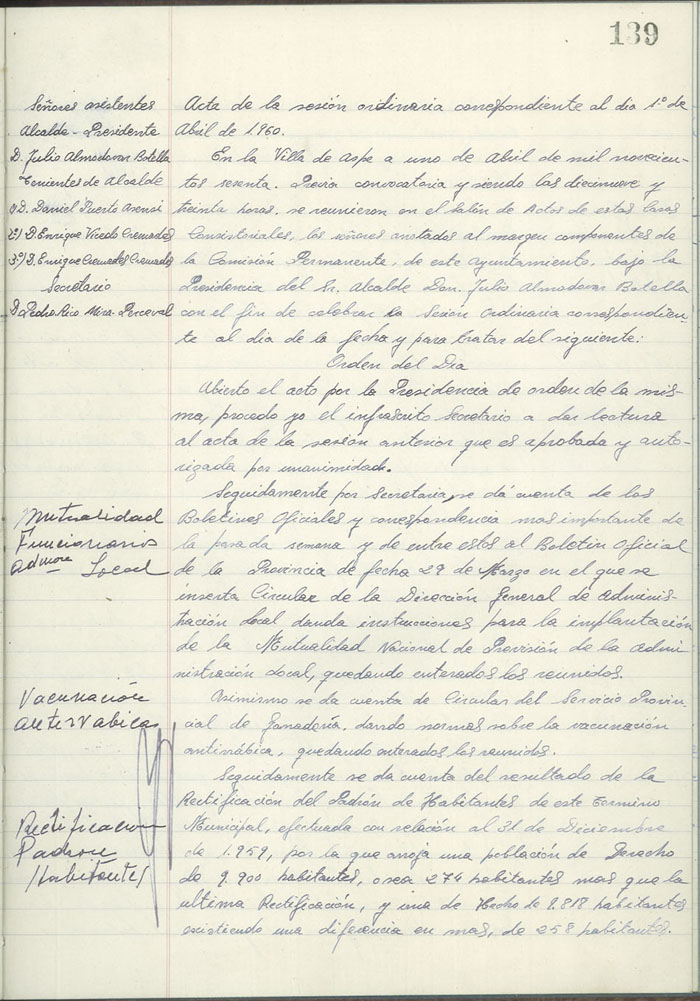 139
Señores asistentes
Alcalde-Presidente
D. Julio Almodovar Botella
Tenientes de Alcalde
1º D. Daniel Puerto Asensi
2º) D. Enrique Vicedo Cremades
3º) D. Enrique Cremades Cremades
Secretario
D. Pedro Rico Mira-Perceval
Acta de la sesión ordinaria correspondiente al dia 1º de
Abril de 1960.
En la Villa de Aspe a uno de Abril de mil novecien-
tos sesenta. Previa convocatoria y siendo las diecinueve y
treinta horas, se reunieron en el Salón de Actos de estas Casas
Consistoriales, los señores anotados al margen componentes de
la Comisión Permanente, de este Ayuntamiento, bajo la
Presidencia del Sr. Alcalde Don Julio Almodovar Botella
con el fin de celebrar la Sesión Ordinaria correspondien-
te al dia de la fecha y para tratar del siguiente:
Orden del Dia
Abierto el acto por la Presidencia de orden de la mis-
ma, procedo yo el infrascrito Secretario a dar lectura
al acta de la sesión anterior que es aprobada y auto-
rizada por unanimidad.
Mutualidad
Funcionarios
Admon Local
Seguidamente por Secretaria, se dá cuenta de los
Boletines Oficiales y correspondencia mas importante de
la pasada semana y de entre estos al Boletin Oficial
de la Provincia de fecha 29 de Marzo en el que se
inserta Circular de la Dirección General de Adminis-
tración Local dando instrucciones para la implantación
de la Mutualidad Nacional de Previsión de la Admi
nistración Local, quedando enterados los reunidos.
Vacunación
antirrabica
Asimismo se da cuenta de Circular del Servicio Provin-
cial de Ganadería, dando normas sobre la vacunación
antirrábica, quedando enterados los reunidos.
Rectificacion
Padron
Habitantes
Seguidamente se da cuenta del resultado de la
Rectificación del Padrón de Habitantes de este Termino
Municipal, efectuada con relación al 31 de Diciembre
de 1.959, por la que arroja una población de Derecho
de 9.900 habitantes, o sea 274 habitantes mas que la
ultima Rectificación, y una de Hecho de 9.818 habitantes
existiendo una diferencia en mas, de 258 habitantes.